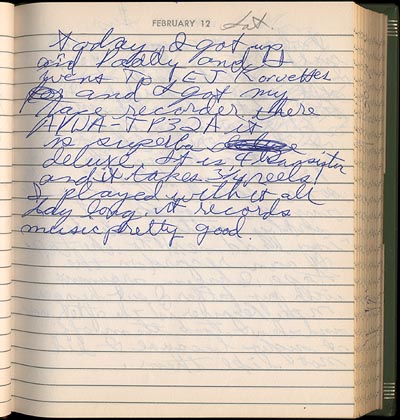 FEBRUARY 12 Sat.
today I got up
and Daddy and I
went To EJ Korvettes
and I got my
tape recorder there
AIWA-TP32A it
is superba
deluxe. It is 4 transistor
and it takes 3¼ reels!
I played with it all
day long. it records
music pretty good.